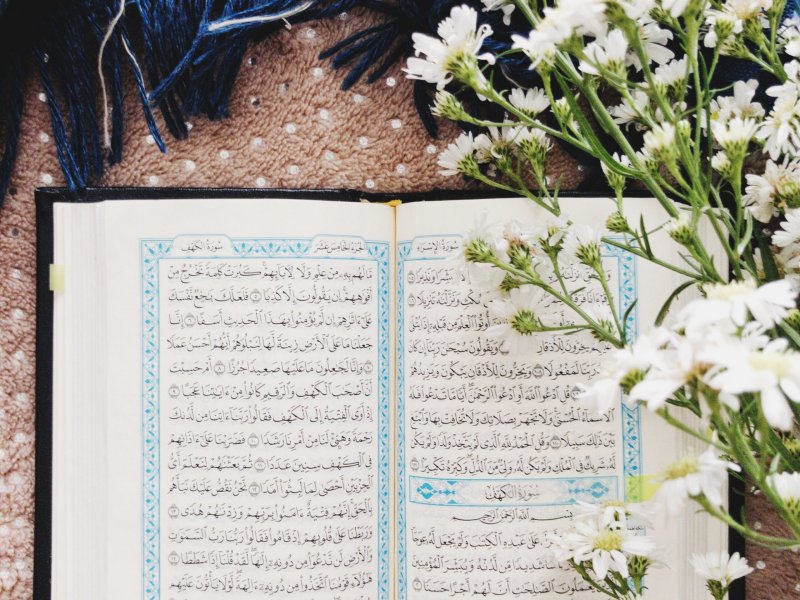 سُورَةُ الإِسْرَاءِ
وَنَذِيرًا ١٠٥
وَنَزَّلْنَٰهُ تَنزِيلًا ١٠٦
أُوتُوا۟ ٱلْعِلْمَ مِن قَبْلِهِۦٓ إِذَا يُتْلَىٰ
يَخِرُّونَ لِلْأَذْقَانِ وَيَقُولُونَ سُبْحَٰنَ رَبِّنَآ إِن كَانَ
رَبِّنَا لَمَفْعُولًا ١٠٨ وَيَخِرُّونَ لِلْأَذْقَانِ يَبْكُونَ وَيَزِيدُهُمْ
قُلِ ٱدْعُوا۟ ٱللَّهَ أَوِ ٱدْعُوا۟ ٱلرَّحْمَٰنَ أَيًّا مَّا تَدْعُوا۟ فَلَهُ
ٱلْأَسْمَآءُ ٱلْحُسْنَىٰ وَلَا تَجْهَرْ بِصَلَاتِكَ وَلَا تُخَافِتْ بِهَا وَٱبْتَغِ
بَيْنَ ذَٰلِكَ سَبِيلًا ١١٠ وَقُلِ ٱلْحَمْدُ لِلَّهِ ٱلَّذِى لَمْ يَتَّخِذْ وَلَدًا وَلَمْ يَكُن
لَّهُۥ شَرِيكٌ فِى ٱلْمُلْكِ وَلَمْ يَكُن لَّهُۥ وَلِىٌّ مِّنَ ٱلذُّلِّ وَكَبِّرْهُ تَكْبِيرًا ١١١
سُورَةُ الكَهْفِ
بِسْمِ ٱللَّهِ ٱلرَّحْمَٰنِ ٱلرَّحِيمِ
عَلَىٰ عَبْدِهِ ٱلْكِتَٰبَ وَلَمْ يَجْعَل لَّهُۥ عِوَجَا
شَدِيدًا مِّن لَّدُنْهُ وَيُبَشِّرَ ٱلْمُؤْمِنِينَ
يَعْمَلُونَ ٱلصَّٰلِحَٰتِ أَنَّ لَهُمْ أَجْرًا حَسَنًا
الجُزْءُ الخَامِسَ عَشَرَ
سُورَةُ الكَهْفِ
مَّا لَهُم بِهِۦ مِنْ عِلْمٍ وَلَا لِءَابَآئِهِمْ كَبُرَتْ كَلِمَةً تَخْرُجُ مِنْ
أَفْوَٰهِهِمْ إِن يَقُولُونَ إِلَّا كَذِبًا ٥ فَلَعَلَّكَ بَٰخِعٌ نَّفْسَكَ
عَلَىٰٓ ءَاثَٰرِهِمْ إِن لَّمْ يُؤْمِنُوا۟ بِهَٰذَا ٱلْحَدِيثِ أَسَفًا ٦ إِنَّا
جَعَلْنَا مَا عَلَى ٱلْأَرْضِ زِينَةً لَّهَا لِنَبْلُوَهُمْ أَيُّهُمْ أَحْسَنُ عَمَلًا
٧ وَإِنَّا لَجَٰعِلُونَ مَا عَلَيْهَا صَعِيدًا جُرُزًا ٨ أَمْ حَسِبْتَ
أَنَّ أَصْحَٰبَ ٱلْكَهْفِ وَٱلرَّقِيمِ كَانُوا۟ مِنْ ءَايَٰتِنَا عَجَبًا ٩
إِذْ أَوَى ٱلْفِتْيَةُ إِلَى ٱلْكَهْفِ فَقَالُوا۟ رَبَّنَآ ءَاتِنَا مِن لَّدُنكَ
رَحْمَةً وَهَيِّئْ لَنَا مِنْ أَمْرِنَا رَشَدًا ١٠ فَضَرَبْنَا عَلَىٰٓ ءَاذَانِهِمْ
فِى ٱلْكَهْفِ سِنِينَ عَدَدًا ١١ ثُمَّ بَعَثْنَٰهُمْ لِنَعْلَمَ أَىُّ
ٱلْحِزْبَيْنِ أَحْصَىٰ لِمَا لَبِثُوٓا۟ أَمَدًا ١٢ نَّحْنُ نَقُصُّ عَلَيْكَ نَبَأَهُم
بِٱلْحَقِّ إِنَّهُمْ فِتْيَةٌ ءَامَنُوا۟ بِرَبِّهِمْ وَزِدْنَٰهُمْ هُدًى ١٣
وَرَبَطْنَا عَلَىٰ قُلُوبِهِمْ إِذْ قَامُوا۟ فَقَالُوا۟ رَبُّنَا رَبُّ ٱلسَّمَٰوَٰتِ
وَٱلْأَرْضِ لَن نَّدْعُوَا۟ مِن دُونِهِۦٓ إِلَٰهًا لَّقَدْ قُلْنَآ إِذًا شَطَطًا ١٤
هَٰٓؤُلَآءِ قَوْمُنَا ٱتَّخَذُوا۟ مِن دُونِهِۦٓ ءَالِهَةً لَّوْلَا يَأْتُونَ عَلَيْهِم